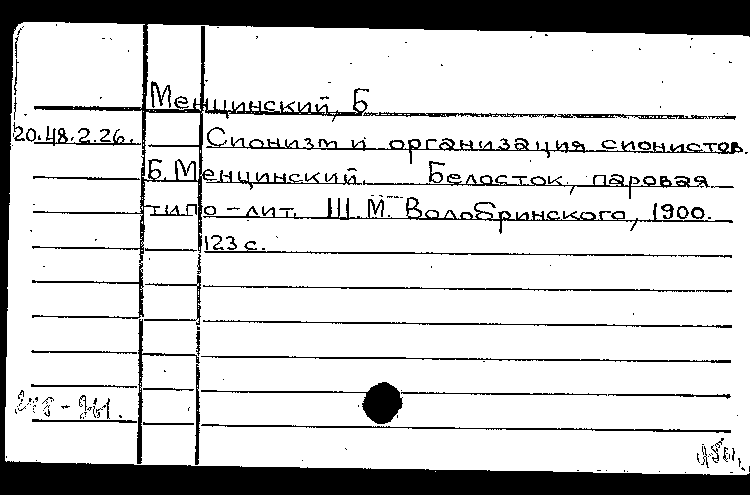 Менцинский, Б
20.48.2.26. Сионизм и организация сионистов.
Б. Менцинский. Белосток, паровая
типо-лит. Ш.М. Волобринского, 1900.
123 с.
248-961.